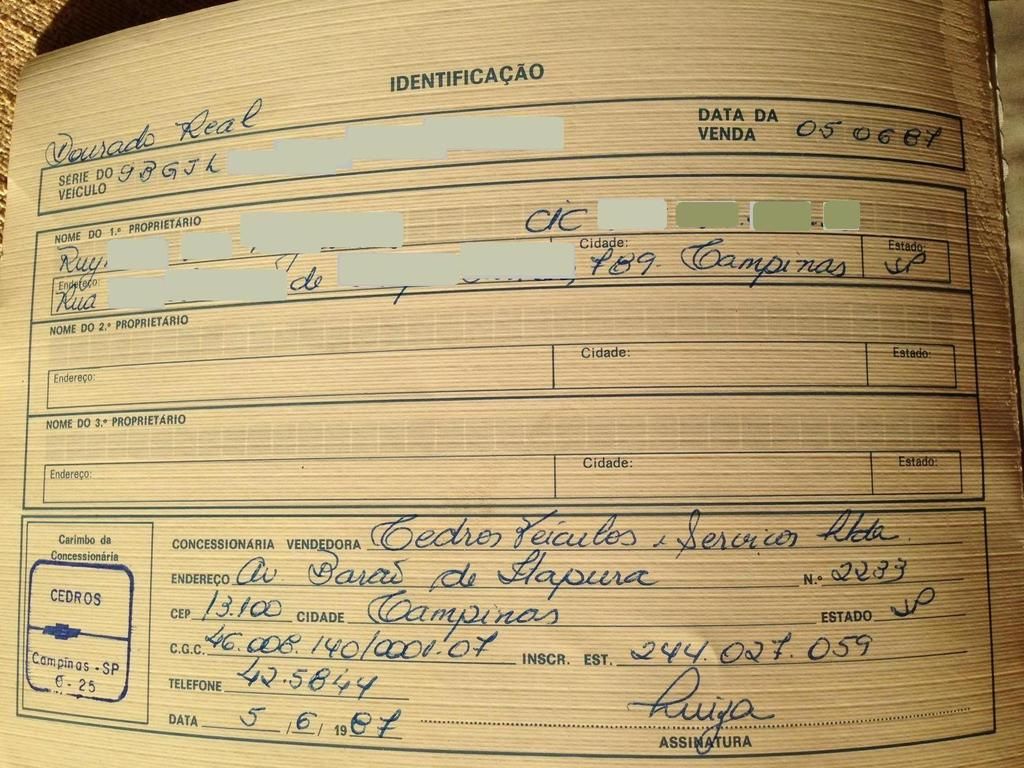 IDENTIFICAÇÃO
Dourado Real
SÉRIE DO VEÍCULO 9BGJL
DATA DA VENDA 05 06 87
NOME DO 1.º PROPRIETÁRIO
CIC
Ruy
Endereço: Cidade: Estado:
Rua de 789. Campinas SP
NOME DO 2.º PROPRIETÁRIO
Endereço: Cidade: Estado:
NOME DO 3.º PROPRIETÁRIO
Endereço: Cidade: Estado:
Carimbo da
Concessionária
CEDROS
Campinas - SP
6 - 25
CONCESSIONÁRIA VENDEDORA Cedros Veículos e Serviços Ltda.
ENDEREÇO Av. Barão de Itapura N.º 2233
CEP 13.100 CIDADE Campinas ESTADO SP
C.G.C. 46.008.140/0001-07 INSCR. EST. 244.027.059
TELEFONE 42.5844
DATA 5 / 6 / 19 87
Luiza
ASSINATURA